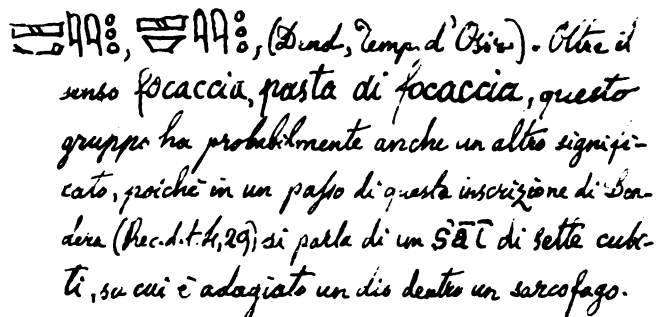 , , (Dend, Temp. d'Osir). Oltre il
senso focaccia, pasta di focaccia, questo
gruppo ha probabilmente anche un altro signifi-
cato, poichè in un passo di questa inscrizione di Den-
dera (Rec. d. t. 4, 29) si parla di un di sette cubi-
ti, su cui è adagiato un dio dentro un sarcofago.